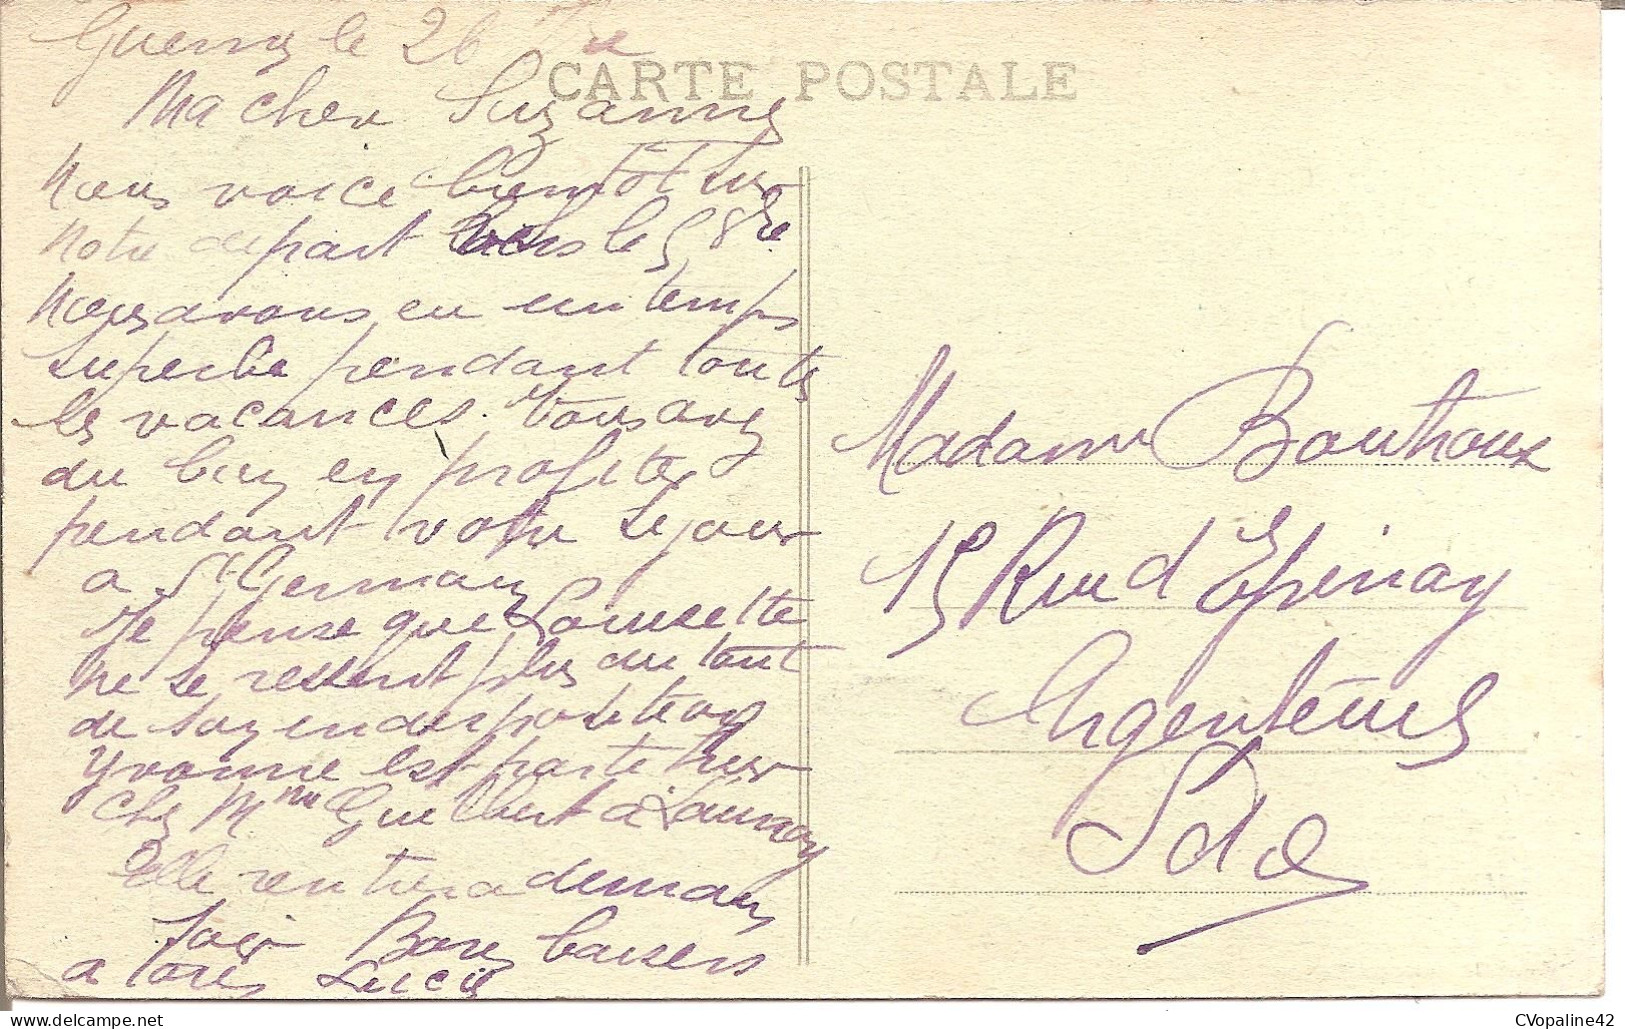 Guerny le 26
CARTE POSTALE
Ma cher Suzanne
Nous voice bientot sur
Notre depart vers le 5 8re
Nous avons eu un temps
superbe pendant toute
les vacances. Vous avez
du bien en profiter
pendant votre sejour
a St Germain
Je pense que Louisette
ne se ressent plus du tout
de son enderposition
Yvonne est partie hier
chez Mme Guilbert à Launay
Elle rentrera demain
soir Bons baisers
a tous Lucie
Madame Bouthoux
15 Rue d'Epinay
Argenteuil
S et O
CVopaline42